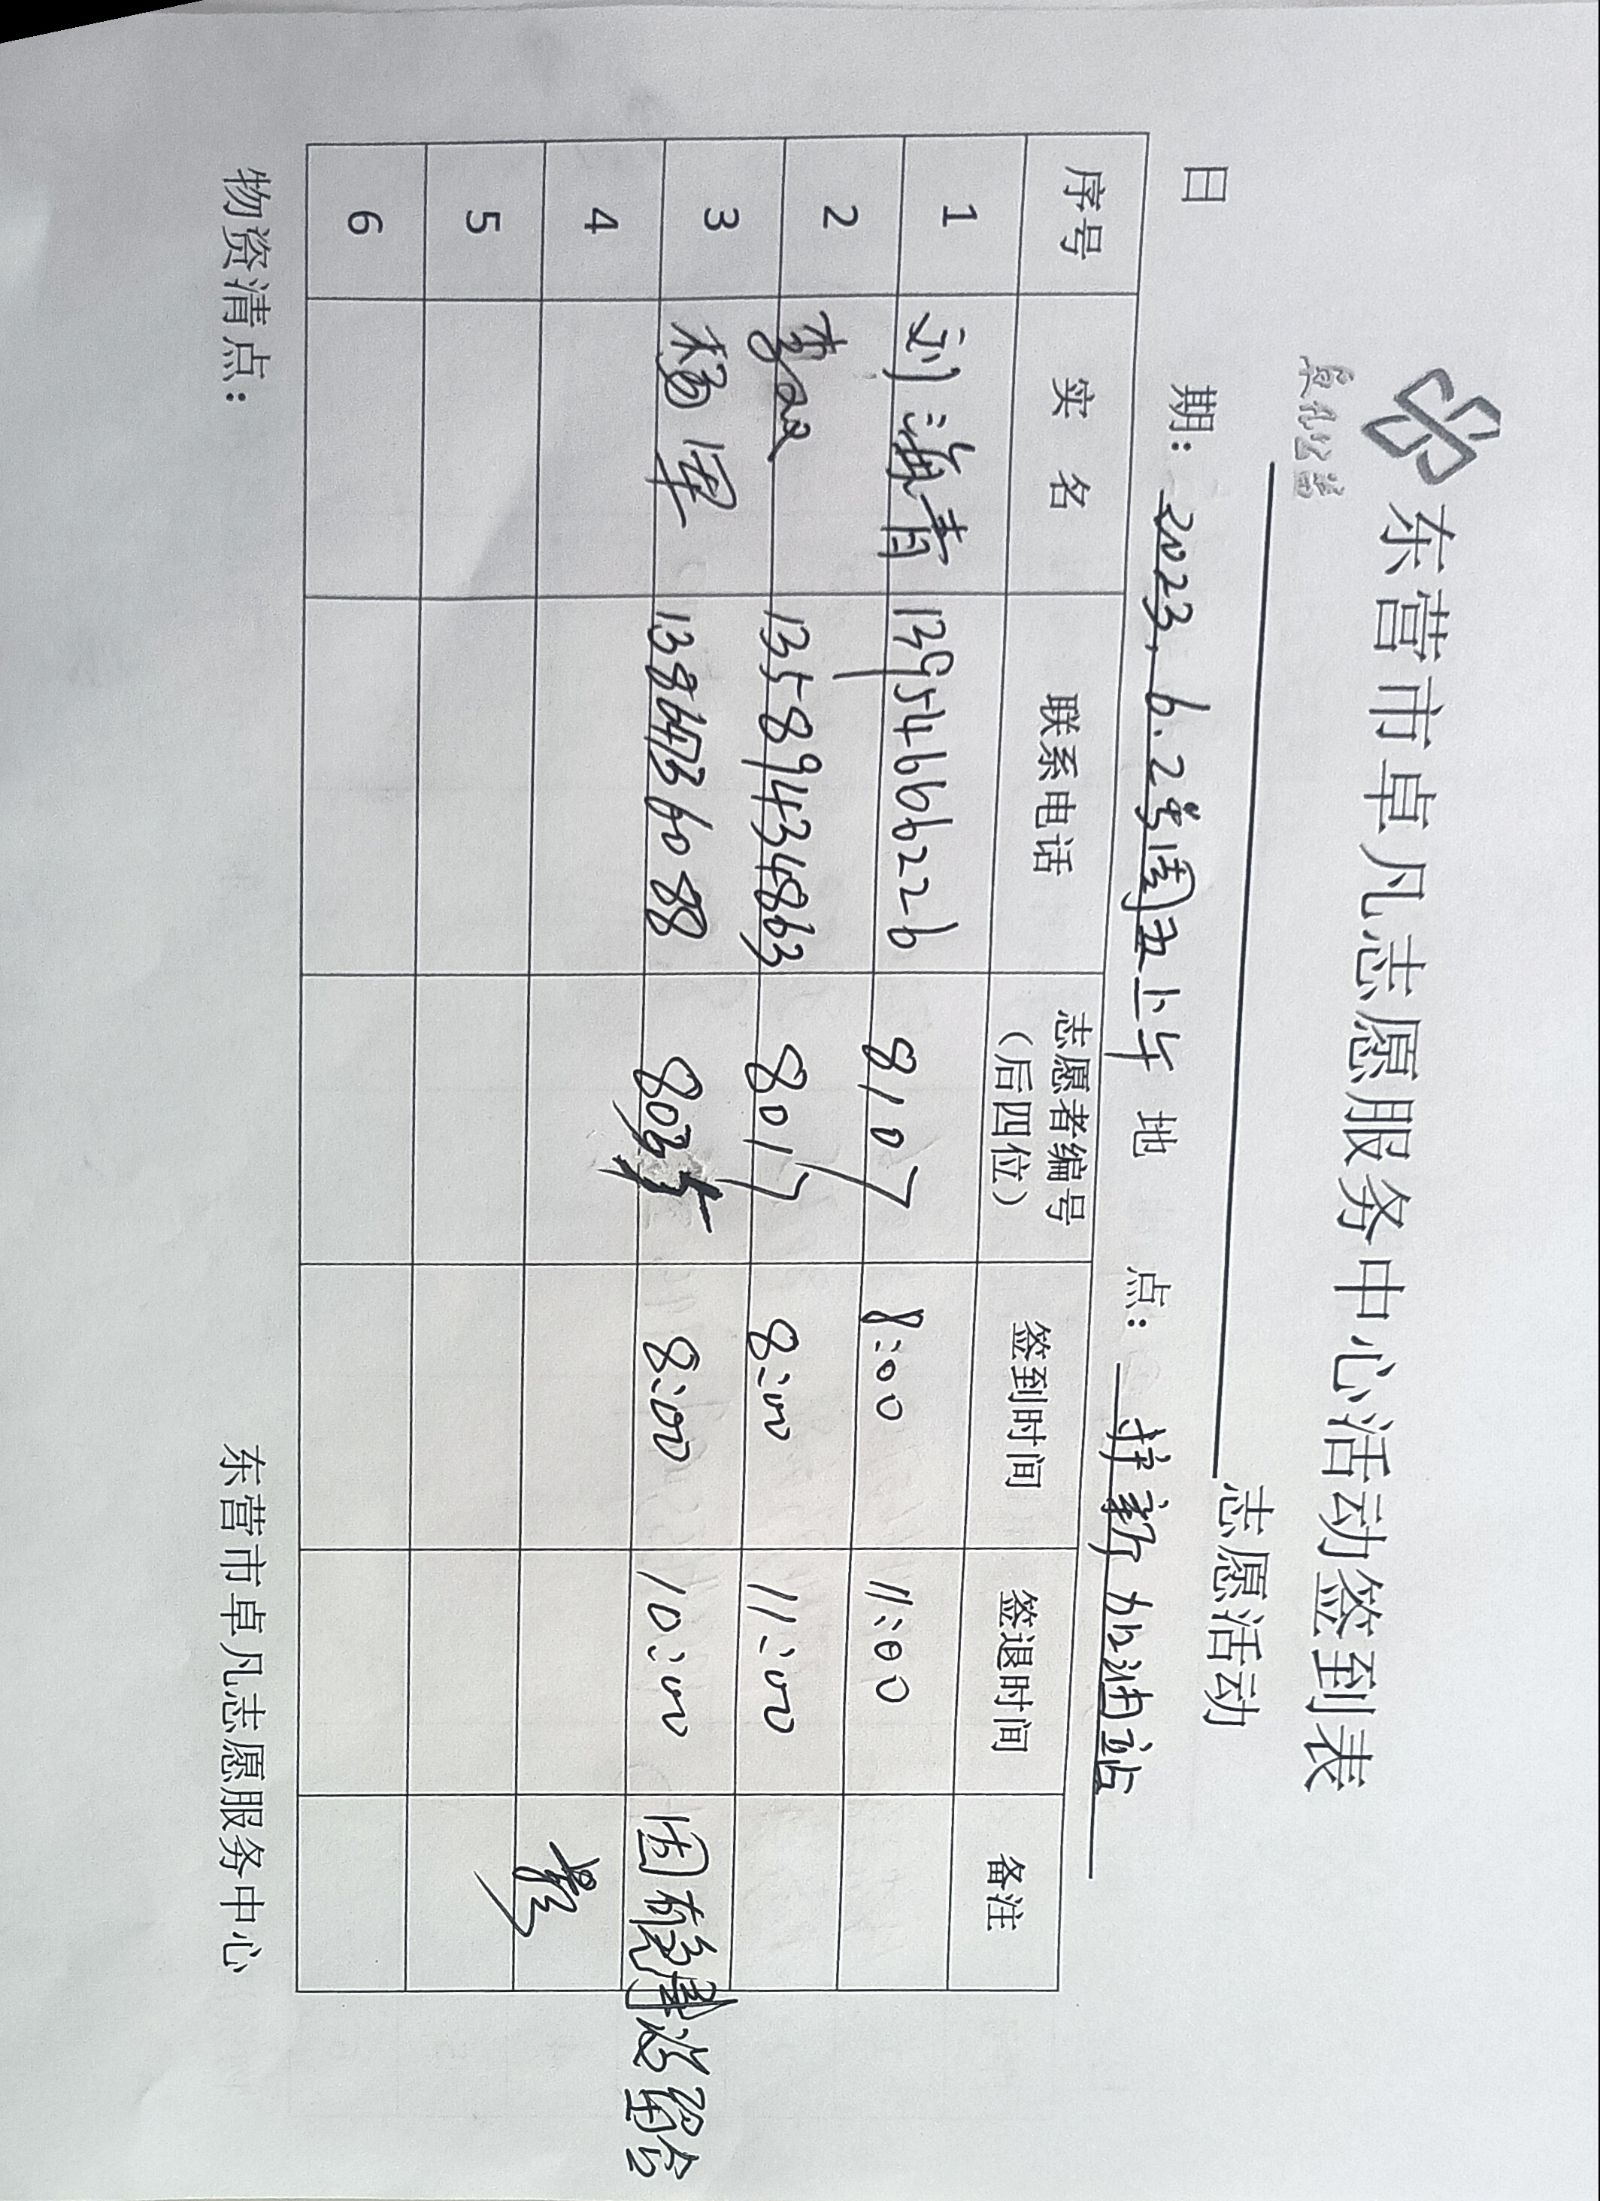 卓凡公益
东营市卓凡志愿服务中心活动签到表
志愿活动
日 期: 2023.6.2号周五上午 地 点: 新加油站
序号 实 名 联系电话 志愿者编号(后四位) 签到时间 签退时间 备注
1 刘海青 13954666226 8107 8:00 11:00
2 李双 13589434863 8017 8:00 11:00
3 杨军 13864736088 803 8:00 10:00 因
4
5
6
物资清点: 东营市卓凡志愿服务中心